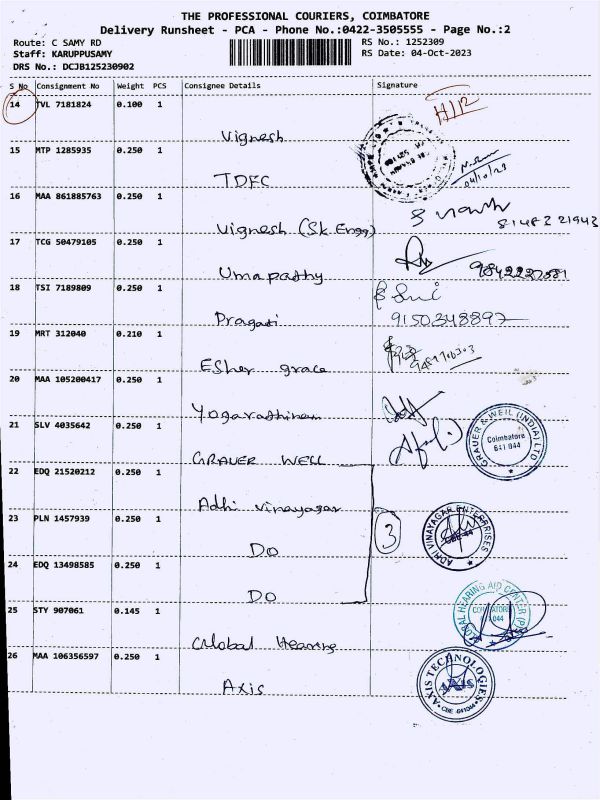 THE PROFESSIONAL COURIERS, COIMBATORE
Delivery Runsheet - PCA - Phone No.:0422-3505555 - Page No.:2
Route: C SAMY RD
RS No.: 1252309
Staff: KARUPPUSAMY
RS Date: 04-Oct-2023
DRS No.: DCJB125230902
S No Consignment No Weight PCS Consignee Details Signature
14 TVL 7181824 0.100 1
Vignesh
15 MTP 1285935 0.250 1
TDFC
04/10/23
16 MAA 861885763 0.250 1
Vignesh (Sk.Engg)
17 TCG 50479105 0.250 1
Umapathy
18 TSI 7189809 0.250 1
Pragati
9150348897
19 MRT 312040 0.210 1
Esher grace
20 MAA 105200417 0.250 1
Yogarathinam
21 SLV 4035642 0.250 1
GRAUER WELL
GRAUER & WEIL (INDIA) LTD
Coimbatore
641 044
22 EDQ 21520212 0.250 1
Adhi vinayagar
23 PLN 1457939 0.250 1
DO
3
ADHI VINAYAGAR ENTERPRISES
CBE-44
24 EDQ 13498585 0.250 1
DO
25 STY 907061 0.145 1
Global Hearing
GLOBAL HEARING AID CENTER (P)
COIMBATORE
641 044
26 MAA 106356597 0.250 1
Axis
AXIS TECHNOLOGIES
AXIS
CBE -641044